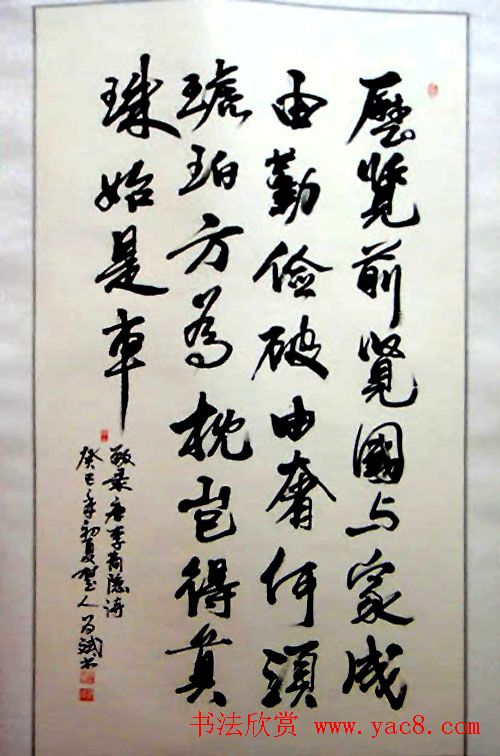 歷覽前賢國与家成
由勤儉破由奢何須
琥珀方為枕豈得真
珠始是車
敬录唐李商隐诗
癸巳年初夏
书法欣赏 www.yac8.com